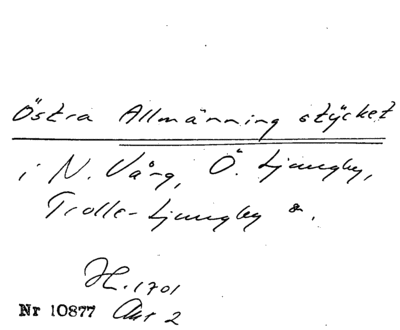 Östra Allmänning stycket
i N. Vång, Ö. Ljungby,
Trolle-Ljungby &.
H. 1701
Nr 10877 Akt 2